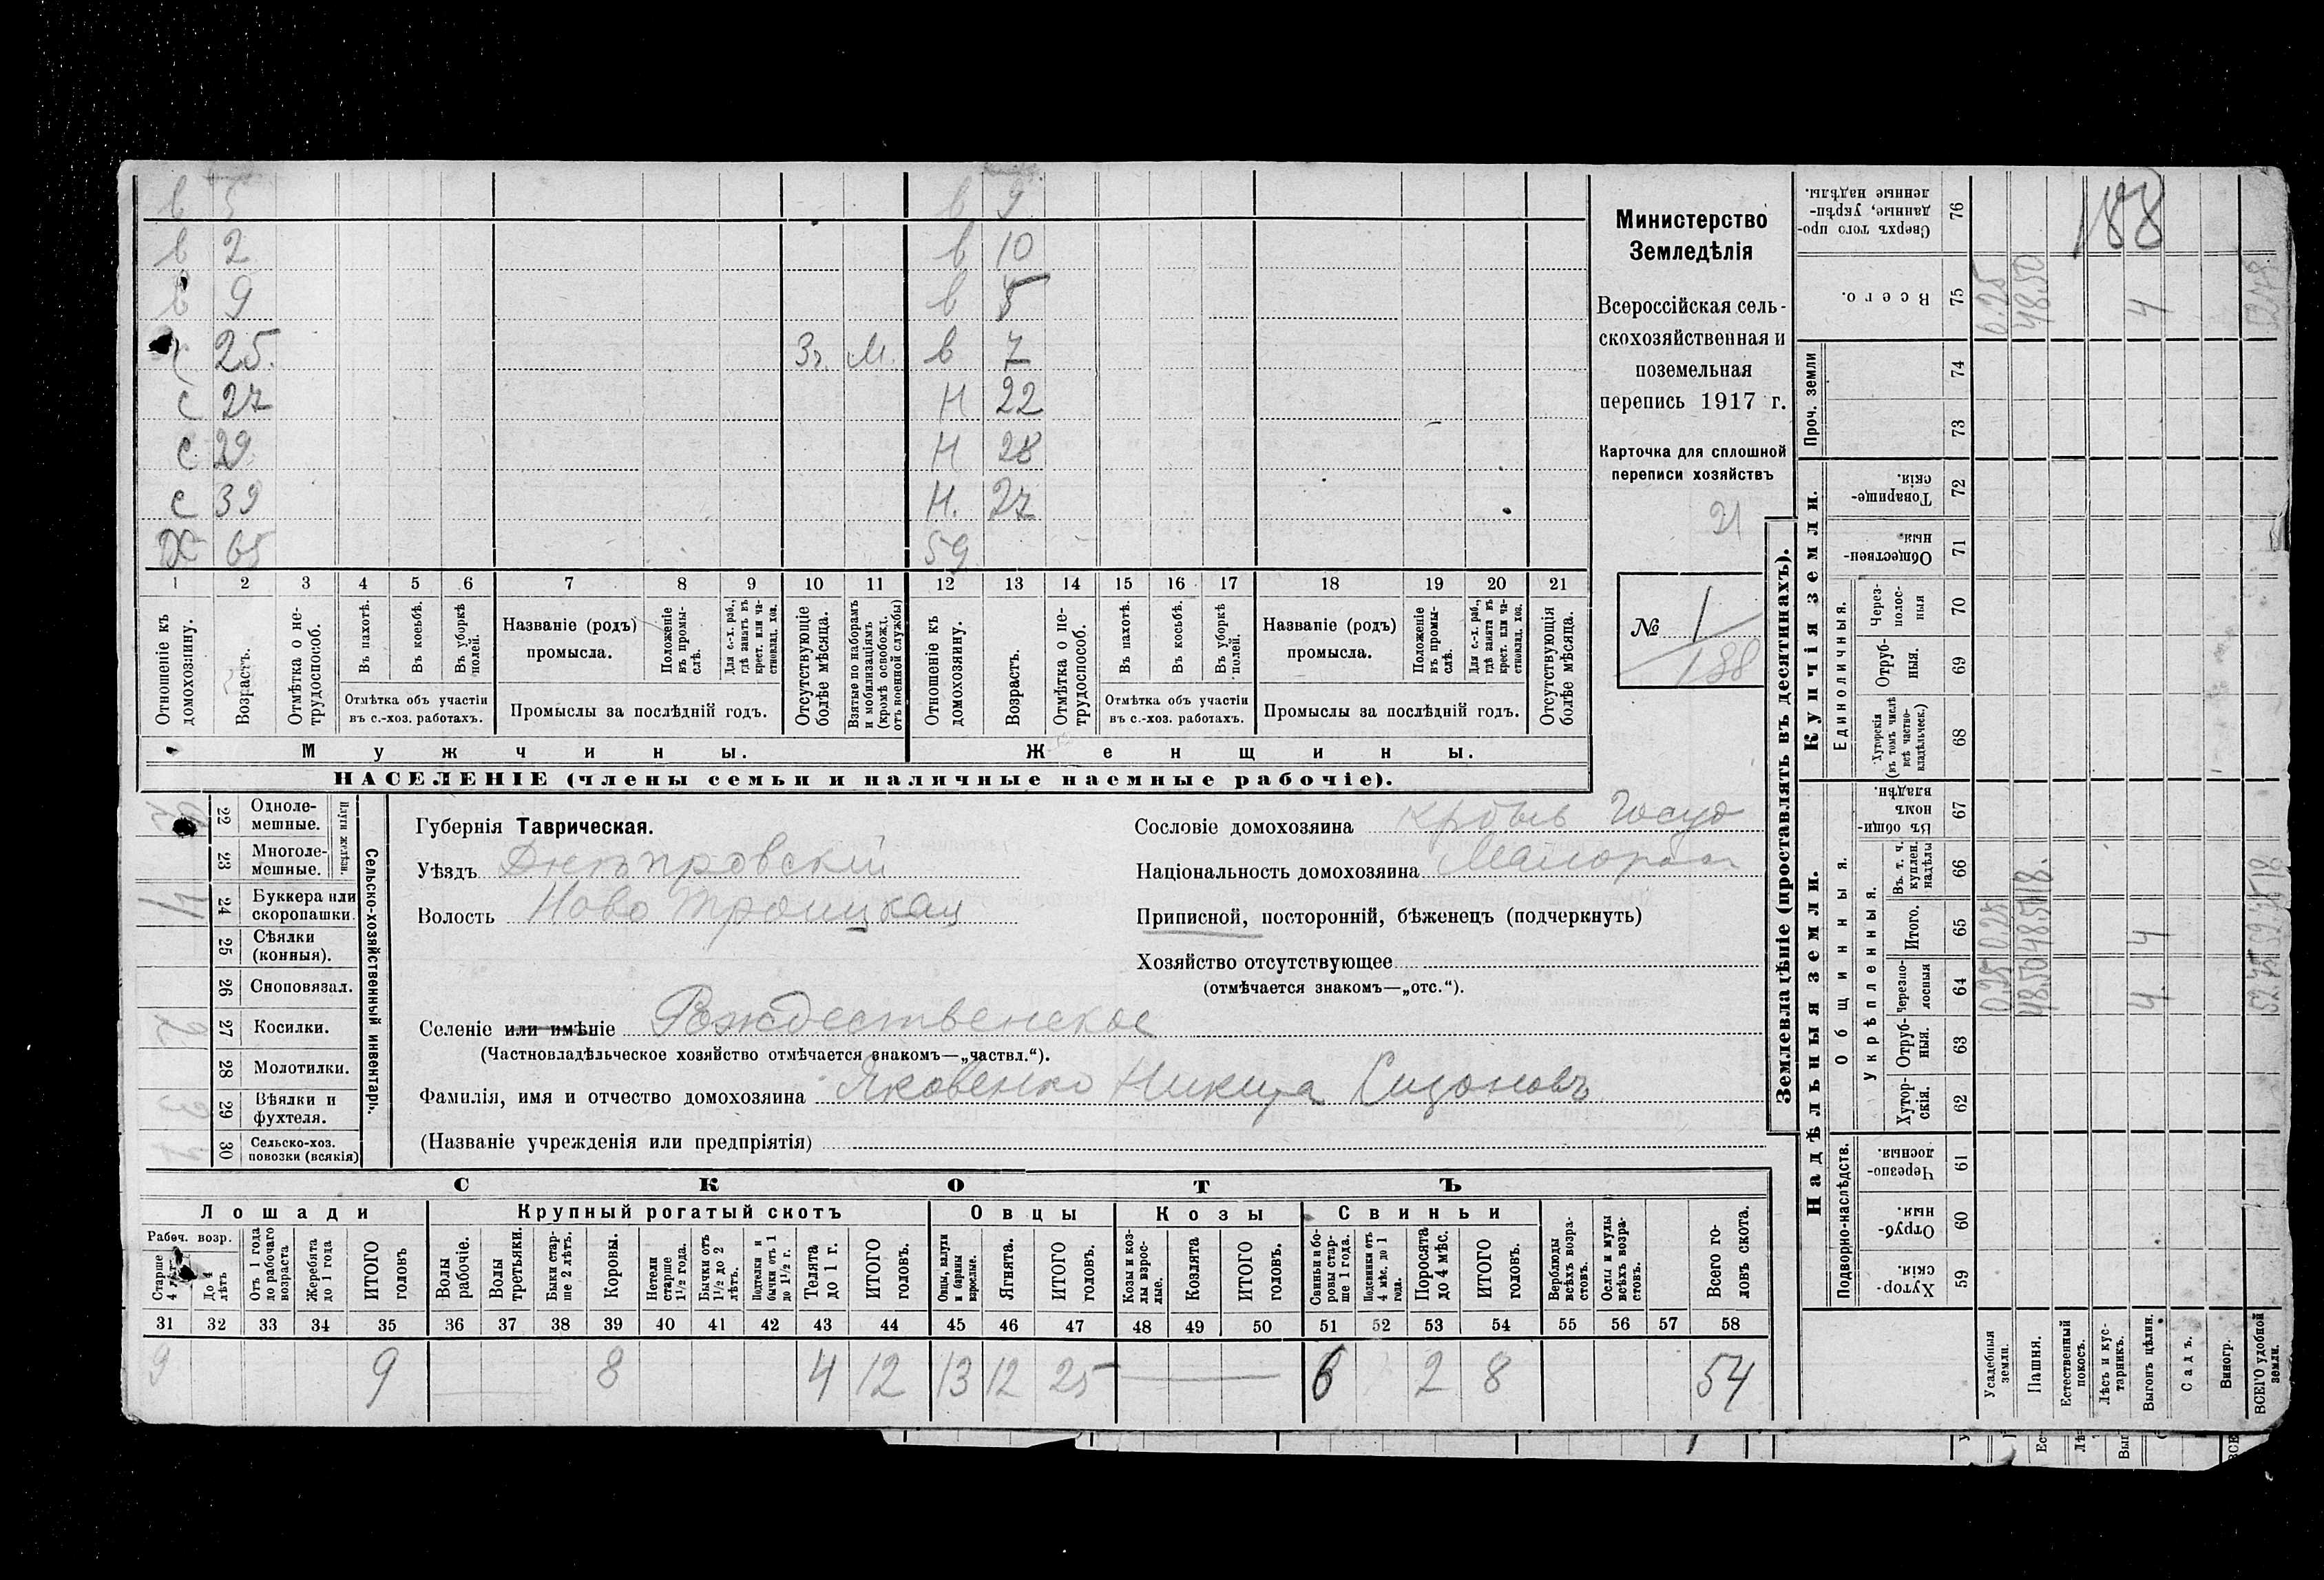 в 5 в 9
в 2 в 10
в 9 в 5
с 25. Зъ. М. в 7
с 27 Н 22
с 29 Н 28
с 39 Н. 27
DX 65 59
1 2 3 4 5 6 7 8 9 10 11 12 13 14 15 16 17 18 19 20 21
Отношеніе къ домохозяину.
Возрастъ.
Отмѣтка о не-
трудоспособ.
Въ пахотѣ.
Въ косьбѣ.
Въ уборкѣ
полей.
Отмѣтка объ участіи
въ с.-хоз. работахъ.
Названіе (родъ)
промысла.
Положеніе
въ промы-
слѣ.
Для с.-х. раб.,
гдѣ занятъ въ
крест. или ча-
стновлад. хоз.
Промыслы за послѣдній годъ.
Отсутствующіе
болѣе мѣсяца.
Взятые по наборамъ
и мобилизаціямъ
(кромѣ освобожд.
отъ военной службы)
Отношеніе къ
домохозяину.
Возрастъ.
Отмѣтка о не-
трудоспособ.
Въ пахотѣ.
Въ косьбѣ.
Въ уборкѣ
полей.
Отмѣтка объ участіи
въ с.-хоз. работахъ.
Названіе (родъ)
промысла.
Положеніе
въ промы-
слѣ.
Для с.-х. раб.,
гдѣ занята въ
крест. или ча-
стновлад. хоз.
Промыслы за послѣдній годъ.
Отсутствующія
болѣе мѣсяца.
Мужчины.
Женщины.
НАСЕЛЕНІЕ (члены семьи и наличные наемные рабочіе).
Министерство
Земледѣлія
Всероссійская сель-
скохозяйственная и
поземельная
перепись 1917 г.
Карточка для сплошной
переписи хозяйствъ
21
№ 1
138
22 Одноле-
мешные.
23 Многоле-
мешные.
Плуги желѣзн.
24 Буккера или
скоропашки.
25 Сѣялки
(конныя).
26 Сноповязал.
27 Косилки. 2
28 Молотилки.
29 Вѣялки и
фухтеля. 3
30 Сельско-хоз.
повозки (всякія) 4
Сельско-хозяйственный инвентарь.
Губернія Таврическая.
Уѣздъ Днѣпровскій
Волость Ново Троицкая
Сословіе домохозяина
Національность домохозяина
Приписной, посторонній, бѣженецъ (подчеркнуть)
Хозяйство отсутствующее
(отмѣчается знакомъ—„отс.“).
Селеніе или имѣніе Рождественское
(Частновладѣльческое хозяйство отмѣчается знакомъ—„частвл.“).
Фамилія, имя и отчество домохозяина Яковенко Никита Сизоновъ
(Названіе учрежденія или предпріятія)
СКОТЪ
Лошади Крупный рогатый скотъ Овцы Козы Свиньи
Рабоч. возр.
Старше
4 лѣтъ
До 4
лѣтъ
Отъ 1 года
до рабочаго
возраста
Жеребята
до 1 года
ИТОГО
головъ
Волы
рабочіе.
Волы
третьяки.
Быки стар-
ше 2 лѣтъ.
Коровы.
Нетели
старше
1½ года.
Бычки отъ
1½ до 2
лѣтъ.
Подтелки и
бычки отъ 1
до 1½ г.
Телята
до 1 г.
ИТОГО
головъ.
Овцы, валухи
и бараны
взрослые.
Ягнята.
ИТОГО
головъ.
Козы и коз-
лы взрос-
лые.
Козлята
ИТОГО
головъ.
Свиньи и бо-
ровы стар-
ше 1 года.
Подсвинки отъ
4 мѣс. до 1
года.
Поросята
до 4 мѣс.
ИТОГО
головъ.
Верблюды
всѣхъ возра-
стовъ.
Ослы и мулы
всѣхъ возра-
стовъ.
Всего го-
ловъ скота.
31 32 33 34 35 36 37 38 39 40 41 42 43 44 45 46 47 48 49 50 51 52 53 54 55 56 57 58
9 9 8 4 12 13 12 25 6 2 8 54
Землевладѣніе (проставлять въ десятинахъ).
Надѣльныя земли.
Купчія земли.
Проч. земли
Подворно-наслѣдств.
Общинныя.
Укрѣпленныя.
Единоличныя.
Сверхъ того про-
данные, укрѣп-
ленные надѣлы.
76
188
Всего.
75 0.25 48.50 4
74
73
Товарище-
скія.
72
Обществен-
ныя.
71
Через-
полос-
ныя
70
Отруб-
ныя.
69
Хуторскія
(въ томъ числѣ
всѣ частно-
владѣльческ.)
68
Въ общи-
номъ
владѣн.
67
Въ. т. ч.
куплен.
надѣлы
66 18.
Итого.
65 0.25 48.50 4
Черезпо-
лосныя
64 0.25 48.50 4 52.75
Отруб-
ныя.
63
Хутор-
скія.
62
Черезпо-
лосныя.
61
Отруб-
ныя.
60
Хутор-
скія.
59
Усадебныя
земли.
Пашня.
Естественный
покосъ.
Лѣсъ и кус-
тарникъ.
Выгонъ цѣлин.
Садъ.
Виногр.
ВСЕГО удобной
земли.